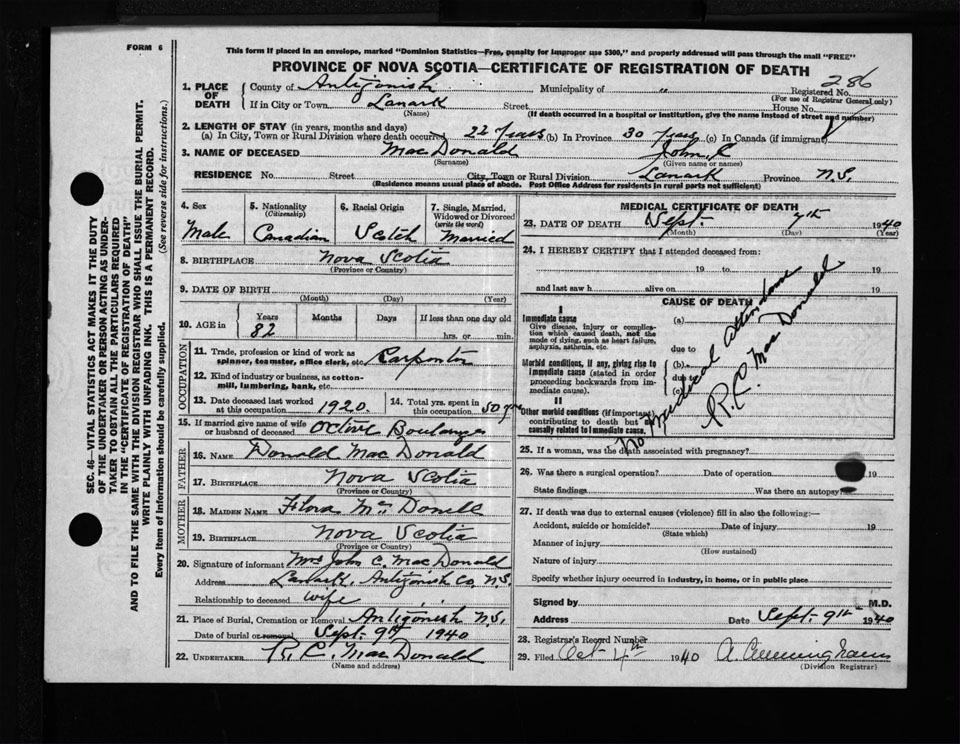 FORM 6
This form if placed in an envelope, marked "Dominion Statistics—Free, penalty for improper use $300," and properly addressed will pass through the mail "FREE"
PROVINCE OF NOVA SCOTIA—CERTIFICATE OF REGISTRATION OF DEATH
286
1. PLACE OF DEATH County of Antigonish Municipality of " Registered No.
(For use of Registrar General only)
If in City or Town Lanark Street House No.
(Name) (If death occurred in a hospital or institution, give the name instead of street and number)
2. LENGTH OF STAY (in years, months and days)
(a) In City, Town or Rural Division where death occurred 22 Years (b) In Province 30 Years (c) In Canada (if immigrant)
3. NAME OF DECEASED MacDonald John C
(Surname) (Given name or names)
RESIDENCE No. Street City, Town or Rural Division Lanark Province N.S.
(Residence means usual place of abode. Post Office Address for residents in rural parts not sufficient)
4. Sex 5. Nationality (Citizenship) 6. Racial Origin 7. Single, Married, Widowed or Divorced (write the word)
Male Canadian Scotch Married
8. BIRTHPLACE Nova Scotia
(Province or Country)
9. DATE OF BIRTH
(Month) (Day) (Year)
10. AGE in Years Months Days If less than one day old
82 hrs. or min.
OCCUPATION
11. Trade, profession or kind of work as spinner, teamster, office clerk, etc. Carpentor
12. Kind of industry or business, as cotton-mill, lumbering, bank, etc.
13. Date deceased last worked at this occupation 1920. 14. Total yrs. spent in this occupation 50 yrs
15. If married give name of wife or husband of deceased Octive Boulanger
FATHER
16. NAME Donald MacDonald
17. BIRTHPLACE Nova Scotia
(Province or Country)
MOTHER
18. MAIDEN NAME Flora
19. BIRTHPLACE Nova Scotia
(Province or Country)
20. Signature of informant Mrs John C. MacDonald
Address Lanark, Antigonish Co. N.S.
Relationship to deceased wife
21. Place of Burial, Cremation or Removal Antigonish N.S.
Date of burial or removal Sept. 9th 1940
22. UNDERTAKER R. C. MacDonald
(Name and address)
MEDICAL CERTIFICATE OF DEATH
23. DATE OF DEATH Sept. 7th 1940
(Month) (Day) (Year)
24. I HEREBY CERTIFY that I attended deceased from:
19 to 19
and last saw h alive on 19
CAUSE OF DEATH
I
Immediate cause (a)
Give disease, injury or complication which caused death, not the mode of dying, such as heart failure, asphyxia, asthenia, etc.
due to
Morbid conditions, if any, giving rise to immediate cause (stated in order proceeding backwards from immediate cause). (b)
due to
(c)
II
Other morbid conditions (if important) contributing to death but not causally related to immediate cause.
No Medical attendance
R. C. MacDonald
25. If a woman, was the death associated with pregnancy?
26. Was there a surgical operation? Date of operation 19
State findings Was there an autopsy?
27. If death was due to external causes (violence) fill in also the following:—
Accident, suicide or homicide? Date of injury 19
(State which)
Manner of injury
(How sustained)
Nature of injury
Specify whether injury occurred in industry, in home, or in public place
Signed by M.D.
Address Date Sept. 9th 1940
28. Registrar's Record Number
29. Filed Oct 4th 1940 A. Cunningham
(Division Registrar)
SEC. 46—VITAL STATISTICS ACT MAKES IT THE DUTY
OF THE UNDERTAKER OR PERSON ACTING AS UNDER-
TAKER TO OBTAIN ALL THE PARTICULARS REQUIRED
IN THE "CERTIFICATE OF REGISTRATION OF DEATH"
AND TO FILE THE SAME WITH THE DIVISION REGISTRAR WHO SHALL ISSUE THE BURIAL PERMIT.
WRITE PLAINLY WITH UNFADING INK. THIS IS A PERMANENT RECORD.
Every item of Information should be carefully supplied. (See reverse side for instructions.)